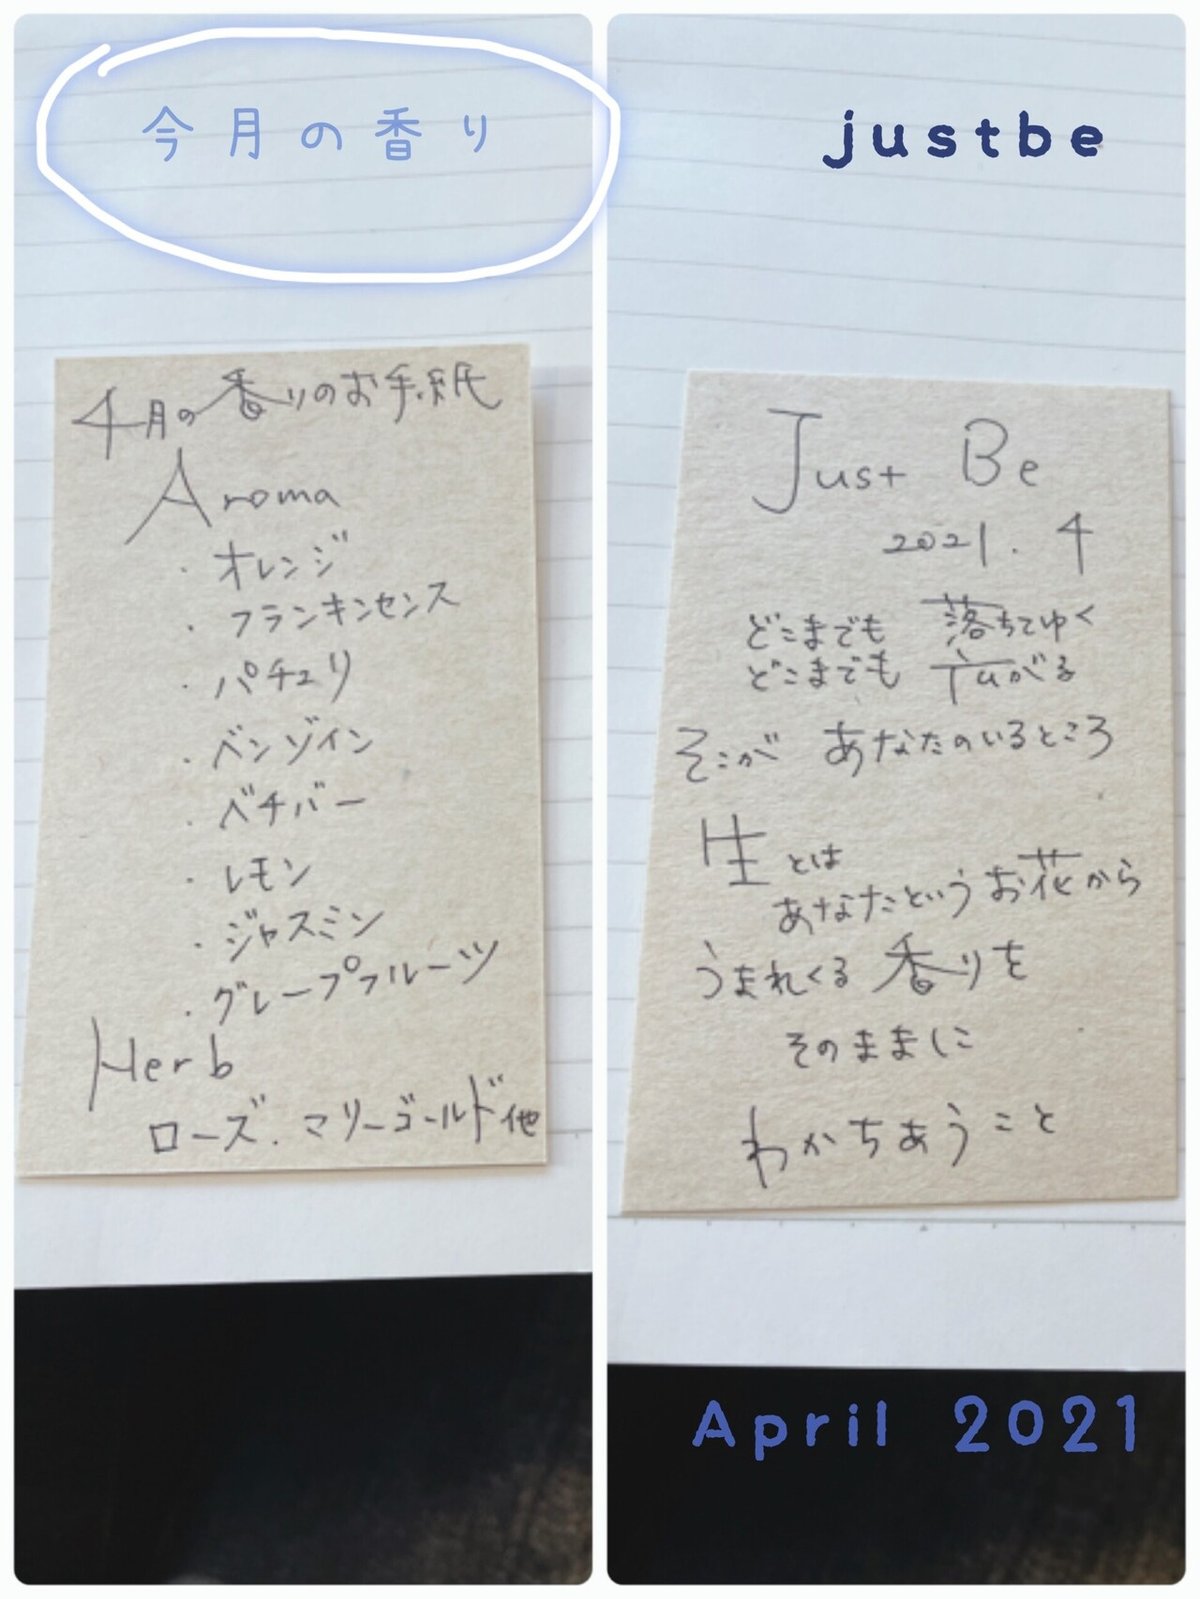 今月の香り
4月の香りのお手紙
Aroma
・オレンジ
・フランキンセンス
・パチュリ
・ベンゾイン
・ベチバー
・レモン
・ジャスミン
・グレープフルーツ
Herb
ローズ、マリーゴールド他
justbe
Just Be
2021.4
どこまでも 落ちてゆく
どこまでも 広がる
そこが あなたのいるところ
生とは
あなたというお花から
うまれくる香りを
そのままに
わかちあうこと
April 2021